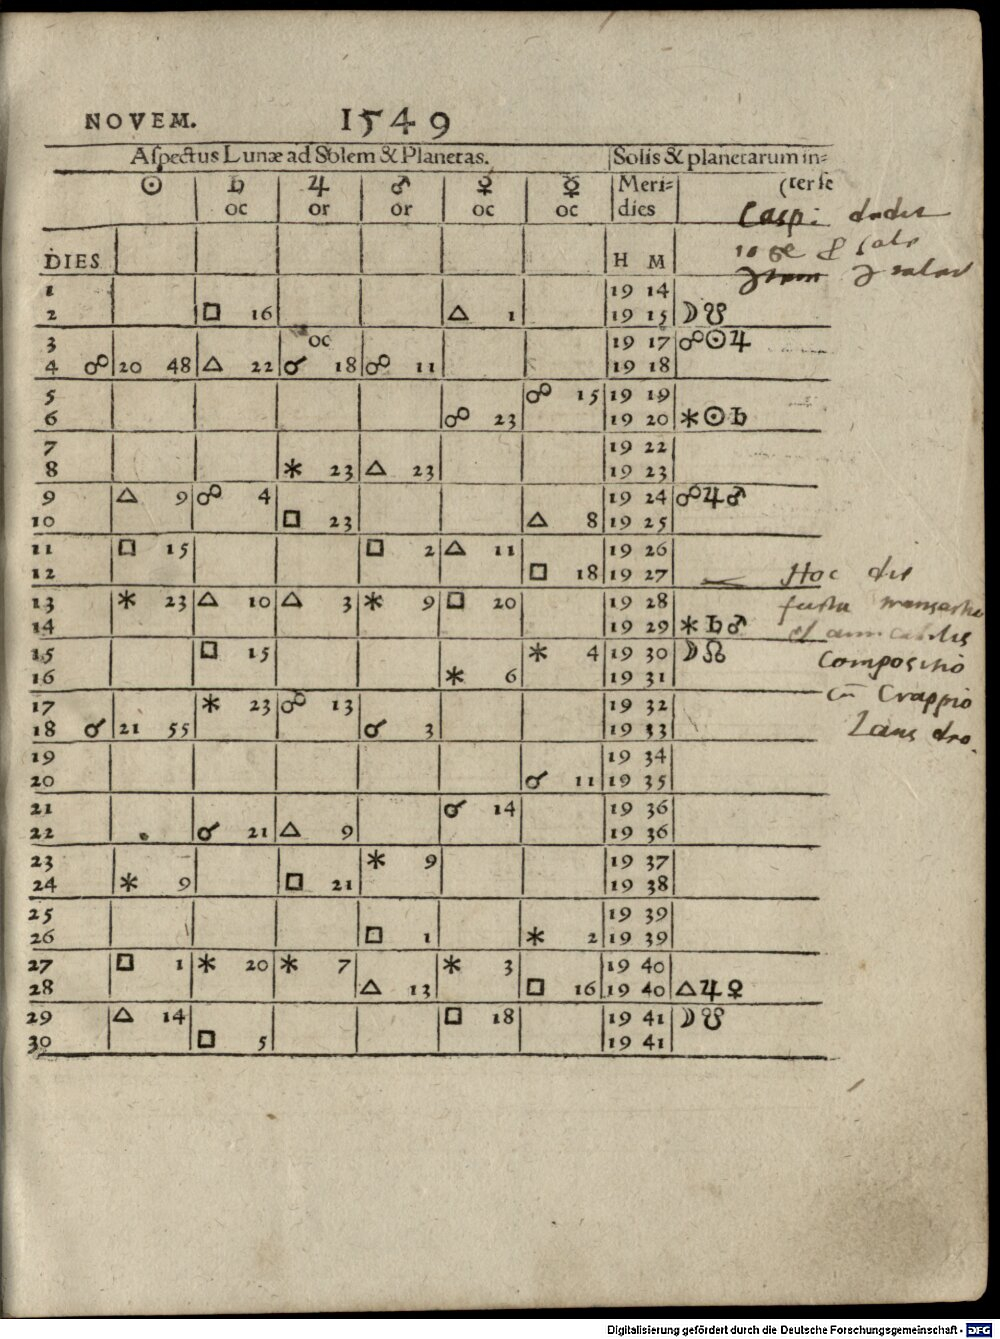 NOVEM. 1549
Aſpectus Lunæ ad Solem & Planetas. Solis & planetarum in=
☉ ♄ ♃ ♂ ♀ ☿ Meri= (ter ſe
oc or or oc oc dies
Casp:
DIES H M
1 19 14
2 □ 16 △ 1 19 15 ☽☋
3 oc 19 17 ☍☉♃
4 ☍ 20 48 △ 22 ☌ 18 ☍ 11 19 18
5 ☍ 15 19 19
6 ☍ 23 19 20 ⚹☉♄
7 19 22
8 ⚹ 23 △ 23 19 23
9 △ 9 ☍ 4 19 24 ☍♃♂
10 □ 23 △ 8 19 25
11 □ 15 □ 2 △ 11 19 26
12 □ 18 19 27 Hoc die
13 ⚹ 23 △ 10 △ 3 ⚹ 9 □ 20 19 28
14 19 29 ⚹♄♂ et amicabilis
15 □ 15 ⚹ 4 19 30 ☽☊ compositio
16 ⚹ 6 19 31
17 ⚹ 23 ☍ 13 19 32 cū Crappio
18 ☌ 21 55 ☌ 3 19 33
19 19 34
20 ☌ 11 19 35
21 ☌ 14 19 36
22 ☌ 21 △ 9 19 36
23 ⚹ 9 19 37
24 ⚹ 9 □ 21 19 38
25 19 39
26 □ 1 ⚹ 2 19 39
27 □ 1 ⚹ 20 ⚹ 7 ⚹ 3 19 40
28 △ 13 □ 16 19 40 △♃♀
29 △ 14 □ 18 19 41 ☽☋
30 □ 5 19 41
Digitalisierung gefördert durch die Deutsche Forschungsgemeinschaft - DFG